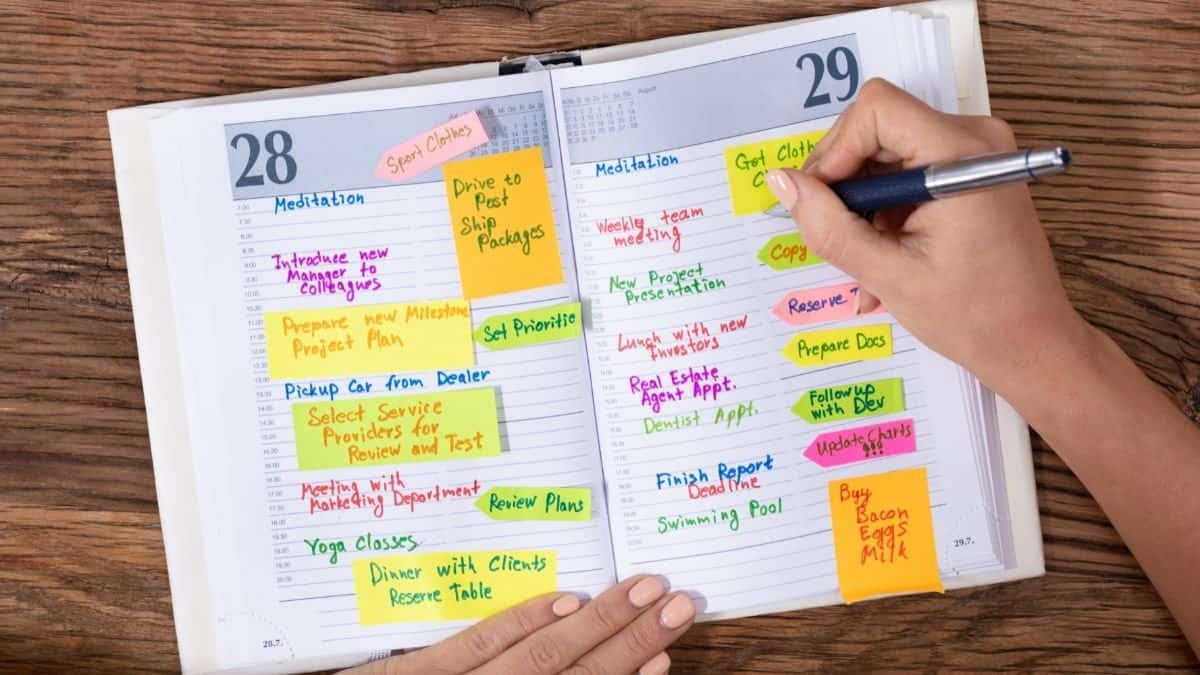 28
Sport Clothes
Meditation
Drive to
Post
Ship
Packages
Introduce new
Manager to
Colleagues
Prepare new Milestone
Project Plan
Set Prioritie
Pickup Car from Dealer
Select Service
Providers for
Review and Test
Meeting with
Marketing Department
Review Plans
Yoga Classes
Dinner with Clients
Reserve Table
28.7.
29
August
Meditation
Get Clothe
Weekly team
meeting
Copy
New Project
Presentation
Reserve T
Lunch with new
Investors
Prepare Docs
Real Estate
Agent Appt.
Dentist Appt.
Followup
with Dev
Update Charts
!!!
Finish Report
Deadline
Swimming Pool
Buy
Bacon
Eggs
Milk
29.7.